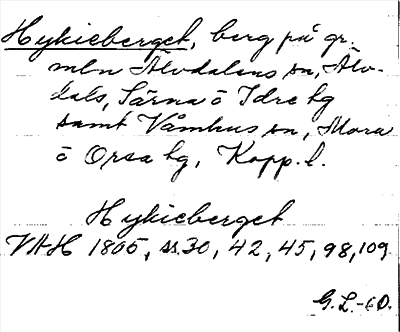 Hykieberget, berg på gr.
mln Älvdalens sn, Älv-
dals, Särna ö Idre hg
samt Våmhus sn, Mora
ö Orsa hg, Kopp. l.
Hykieberget
VAH 1805, ss. 30, 42, 45, 98, 109
G. L.-D.